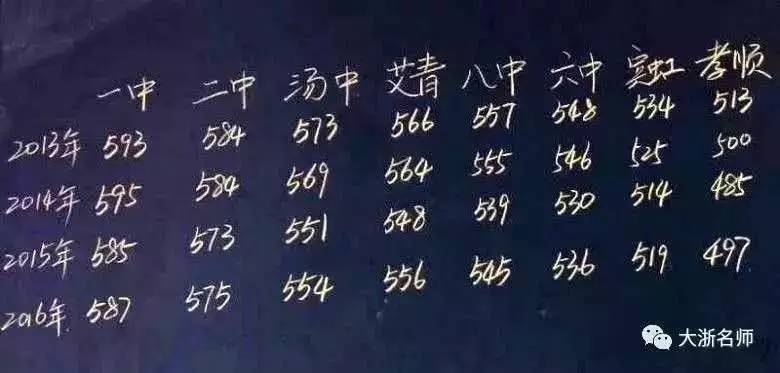 一中 二中 汤中 艾青 八中 六中 宾虹 孝顺
2013年 593 584 573 566 557 548 534 513
2014年 595 584 569 564 555 546 525 500
2015年 585 573 551 548 539 530 514 485
2016年 587 575 554 556 545 536 519 497
大浙名师